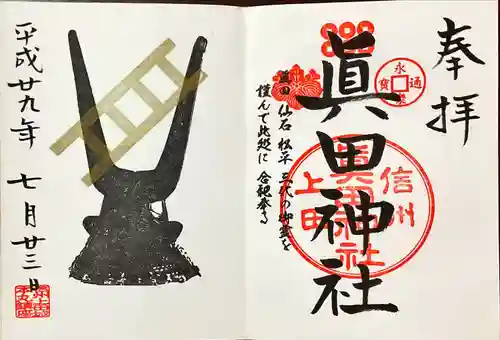 奉拝
永通寳
眞田神社
信州
上田
眞田 仙石 松平 三代の御霊を
謹んで此処に 合祀奉る
平成廿九年 七月廿三日